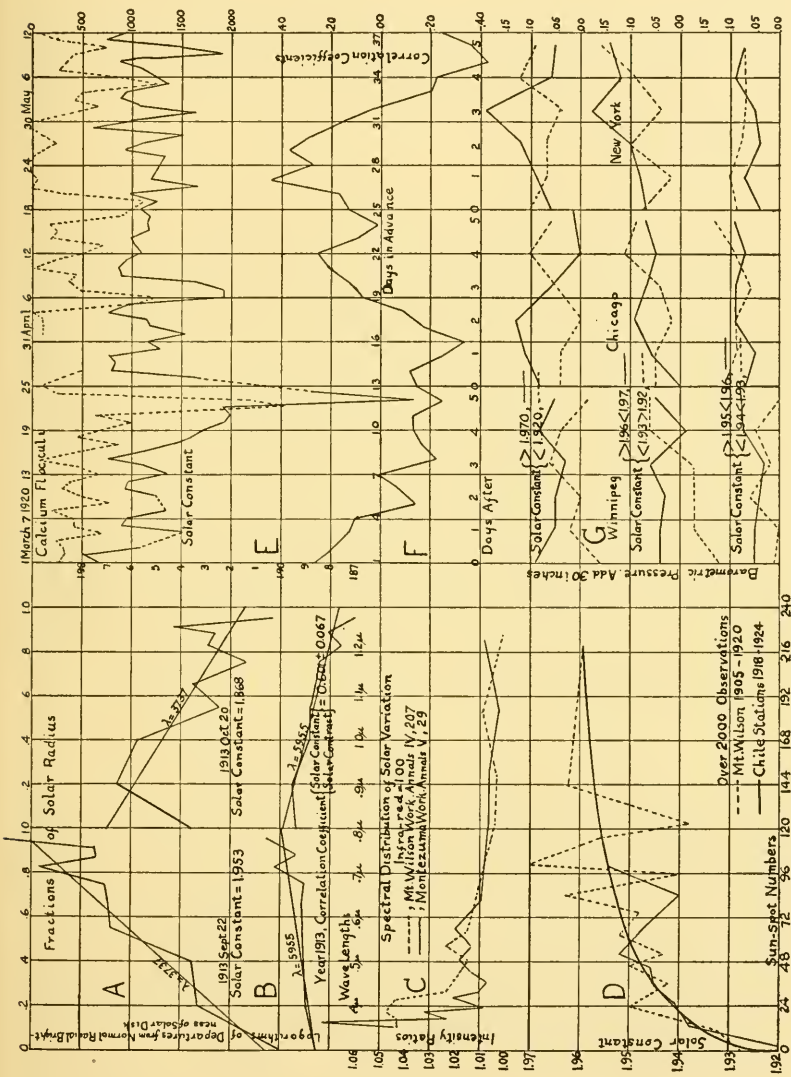 Fractions of Solar Radius
0 .2 .4 .6 .8 1.0 .2 .4 .6 .8 1.0
Logarithms of Departures from Normal Radial Brightness of Solar Disk
A
λ=3737
λ=3737
1913 Sept 22
Solar Constant=1.953
1913 Oct 20
Solar Constant=1.868
B
λ=5955
λ=5955
Year 1913, Correlation Coefficient {Solar Constant / Solar Contrast} = ± 0.067
Wave Lengths
.5μ .6μ .7μ .8μ .9μ 1.0μ 1.1μ 1.2μ
Spectral Distribution of Solar Variation
Infra-red=100
-----, Mt.Wilson Work, Annals IV, 207
——, Montezuma Work, Annals V, 29
C
Intensity Ratios
1.06
1.05
1.04
1.03
1.02
1.01
1.00
D
Solar Constant
1.97
1.96
1.95
1.94
1.93
1.92
Over 2000 Observations
---- Mt.Wilson 1905-1920
—— Chile Stations 1918-1924
Sun-Spot Numbers
0 24 48 72 96 120 144 168 192 216 240
1 March 7 1920 13 19 25 31 April 6 12 18 24 30 May 6 12
Calcium Flocculi
Solar Constant
0
500
1000
1500
2000
1.96
5
4
3
2
1
1.90
9
8
1.87
E
Correlation Coefficients
.20
.00
.20
.40
F
Days in Advance
1 4 7 10 13 16 19 22 25 28 31 34 37
Days After
0 1 2 3 4 5 0 1 2 3 4 5 0 1 2 3 4 5
Barometric Pressure. Add 30 inches
Solar Constant {> 1.970, —— < 1.920, ----
G
Winnipeg
Chicago
New York
Solar Constant {>1.96<1.97, —— <1.93>1.92, ----
Solar Constant {>1.95<1.96, —— <1.94<1.93, ----
.15
.10
.05
.15
.10
.05
.15
.10
.05
.00